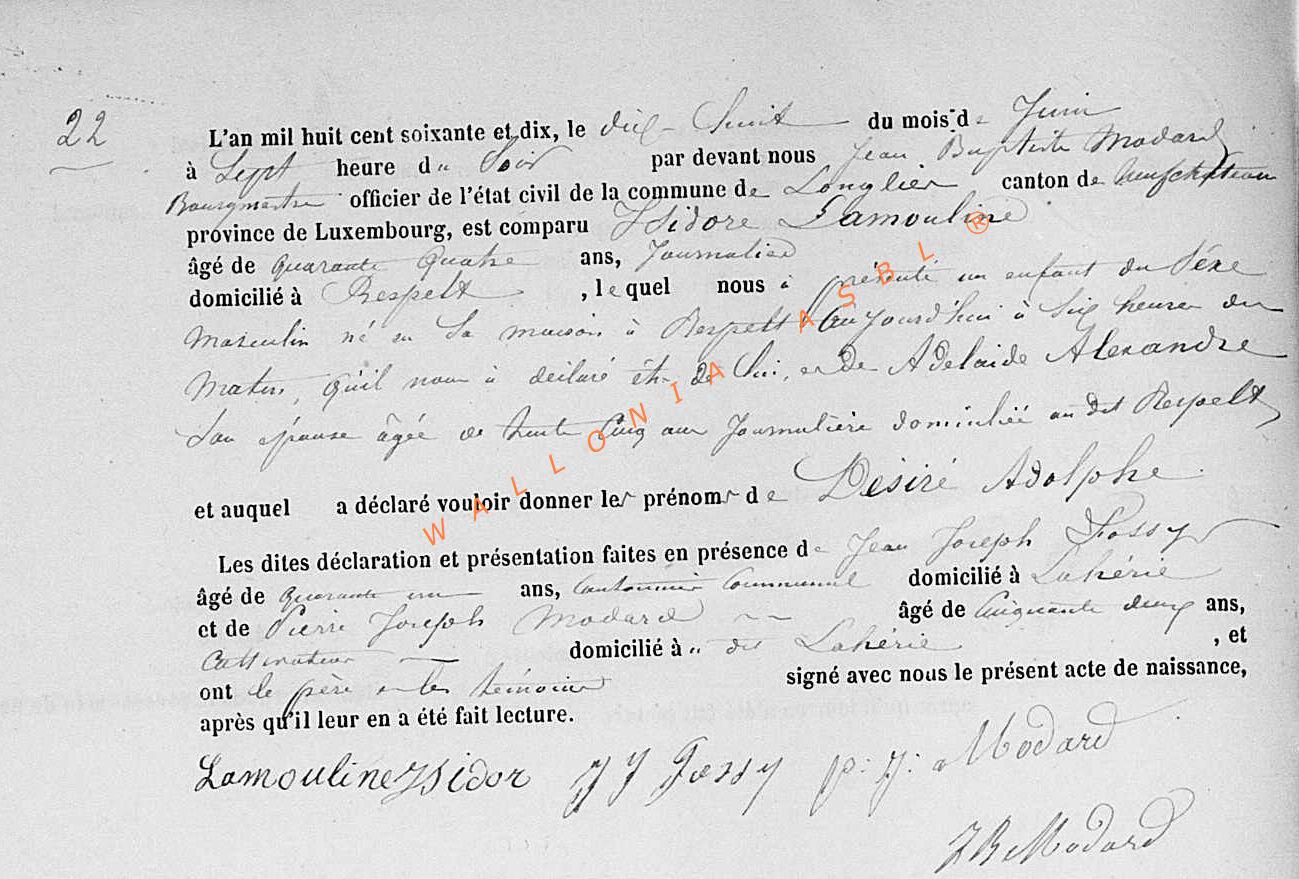 22
L'an mil huit cent soixante et dix, le dix-huit du mois de Juin
à Sept heure du Soir par devant nous Jean Baptiste Modard
Bourgmestre officier de l'état civil de la commune de Longlier canton de Neufchateau
province de Luxembourg, est comparu Isidore Lamouline
âgé de quarante quatre ans, Journalier
domicilié à Respelt , lequel nous à présenté un enfant du Séxe
Masculin né en Sa maison à Respelt Aujourd'hui à Six heures du
Matin, qu'il nous à déclaré être de lui, et de Adelaide Alexandre
Son épouse âgée de trente Cinq ans Journalière domiciliée au dit Respelt
et auquel a déclaré vouloir donner les prénoms de Désiré Adolphe
Les dites déclaration et présentation faites en présence de Jean Joseph Fossy
âgé de quarante un ans, Cantonnier Communal domicilié à Lahérie
et de Pierre Joseph Modard âgé de Cinquante deux ans,
Cultivateur domicilié à au dit Lahérie , et
ont le père et les témoins signé avec nous le présent acte de naissance,
après qu'il leur en a été fait lecture.
Lamouline Isidor J J Fossy p: j: Modard
J B Modard
WALLONIA ASBL ®